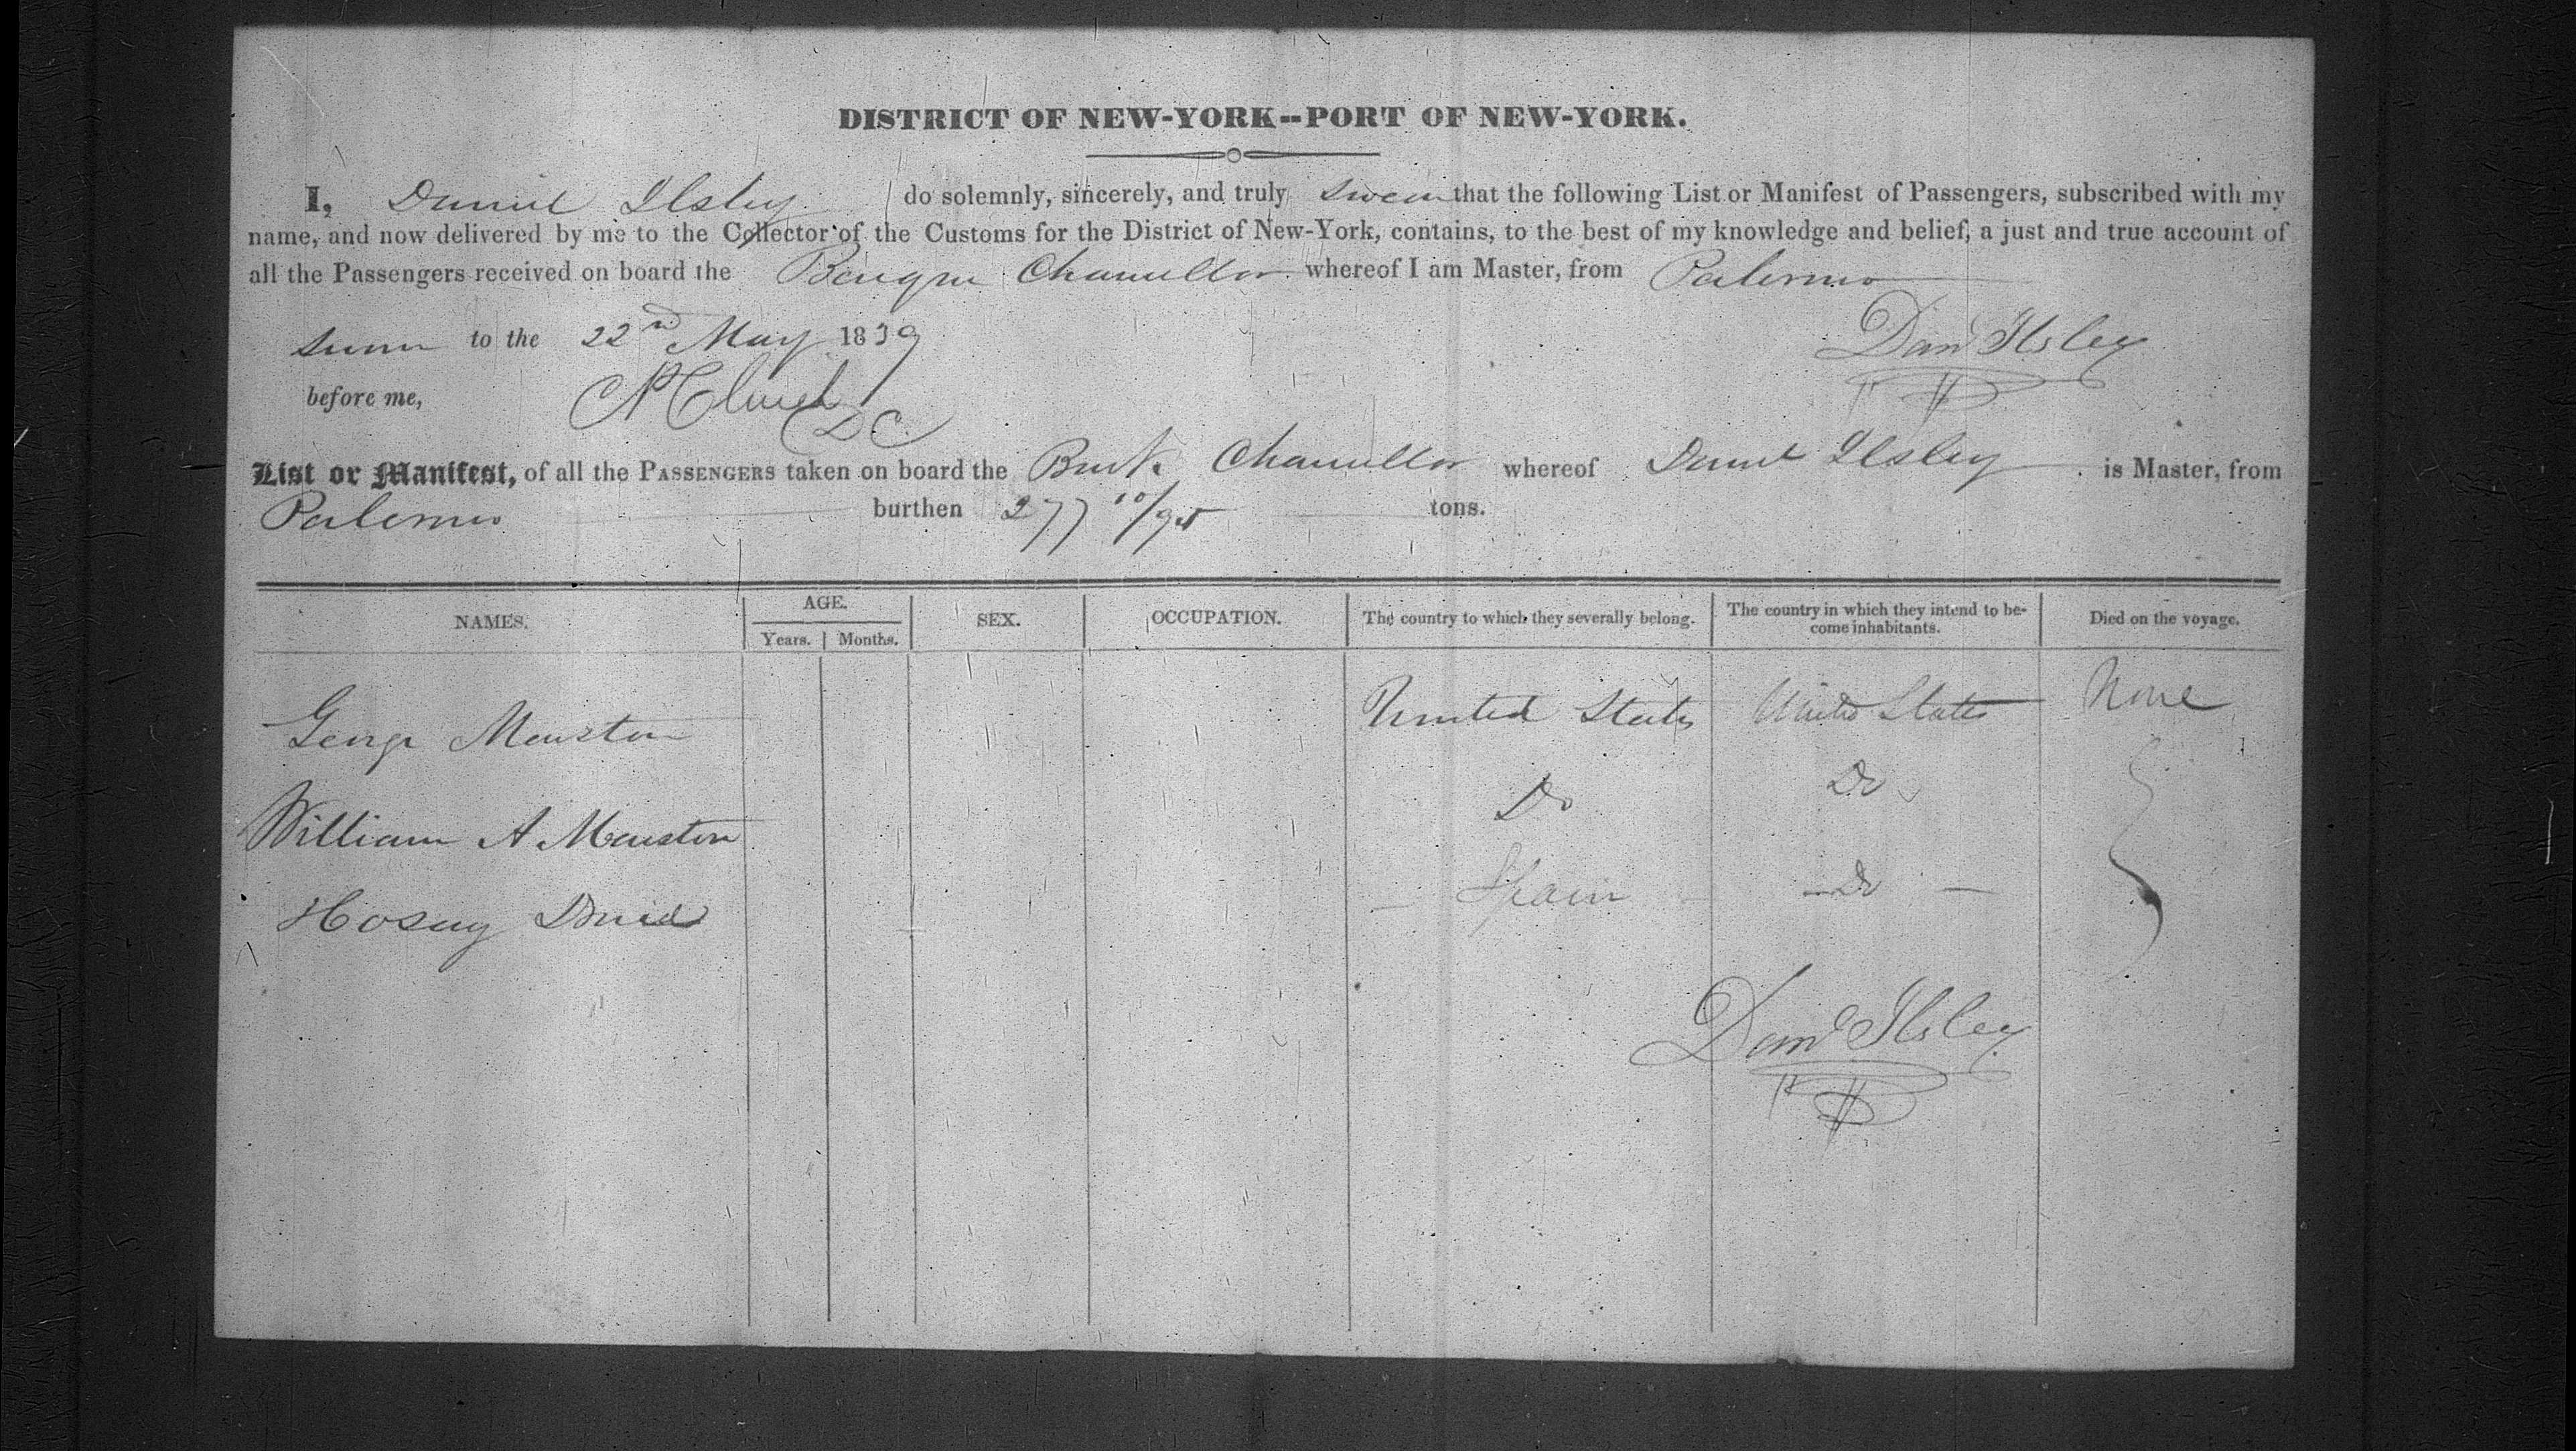 DISTRICT OF NEW-YORK--PORT OF NEW-YORK.
I, Daniel Ilsley do solemnly, sincerely, and truly swear that the following List or Manifest of Passengers, subscribed with my
name, and now delivered by me to the Collector of the Customs for the District of New-York, contains, to the best of my knowledge and belief, a just and true account of
all the Passengers received on board the Barque Chancellor whereof I am Master, from Palermo
sworn to the 22nd May 1839 Danl Ilsley
before me, DC
List or Manifest, of all the PASSENGERS taken on board the Bark Chancellor whereof Daniel Ilsley is Master, from
Palermo burthen 277 10/95 tons.
NAMES. AGE. SEX. OCCUPATION. The country to which they severally belong. The country in which they intend to be-
come inhabitants. Died on the voyage.
Years. Months.
George Marston United States United States None
William A Marston Do Do
Hosey David Spain Do
Danl Ilsley